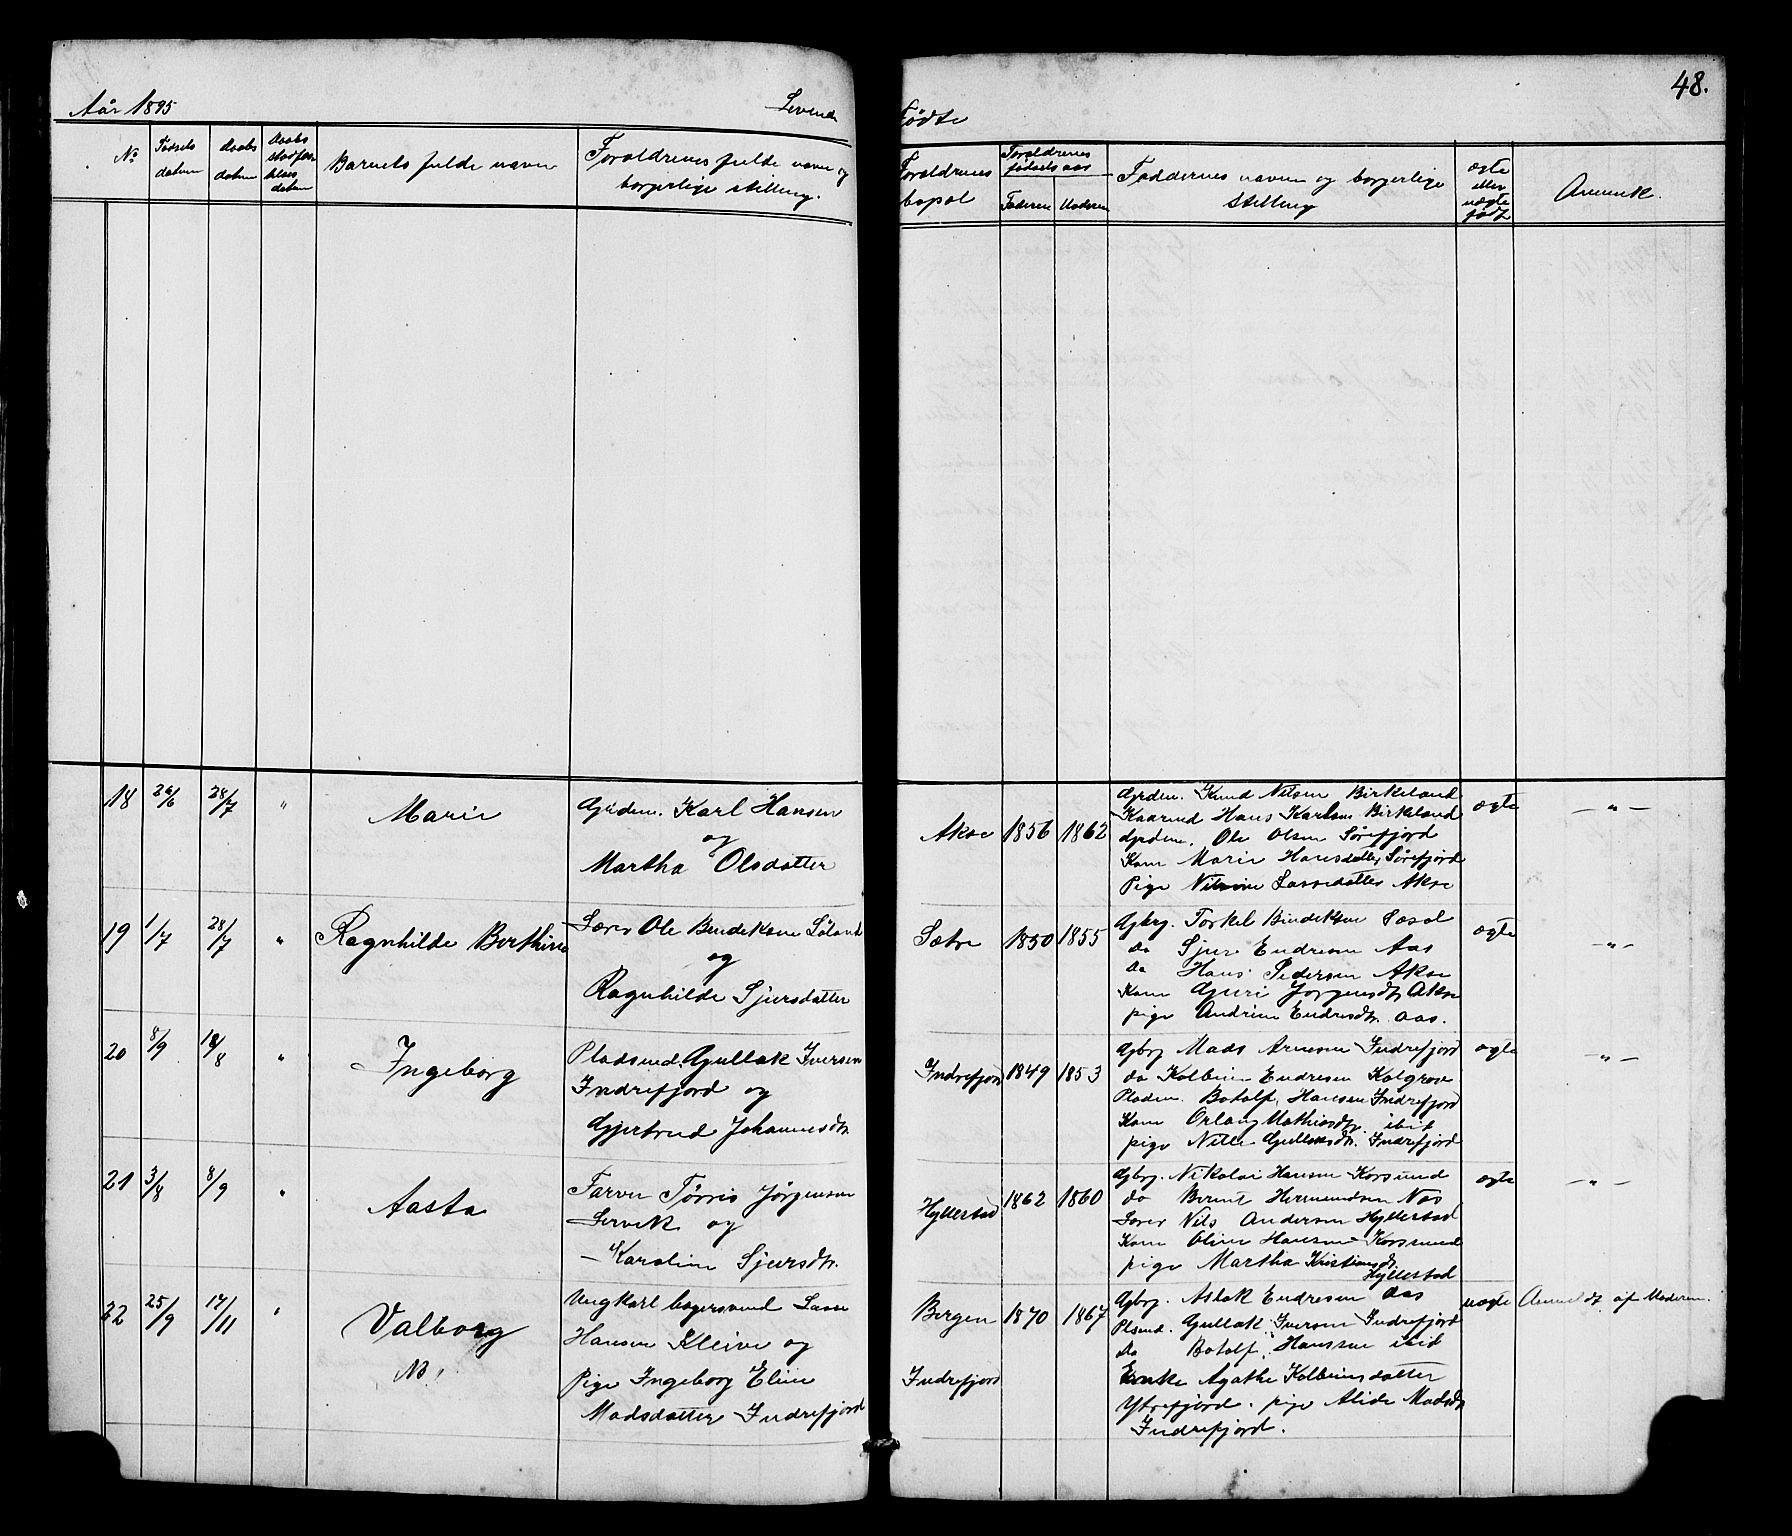 Aår 1895
Levend
fødte
48.
No
Fødsels datum
Daabs datum
Daabs
datum
Barnets fulde navn
Forældrenes fulde navn og
borgerlige stilling.
Forældrenes
bopæl
Forældrenes
fødselsaar
Faderen
Moderen
Faddernes navn og borgerlige
Stilling
ægte
eller
uægte
født
Anmerk.
18 26/6 28/7 " Marie
Gjrdm. Karl Hansen
og
Martha Olsdatter
Akse 1856 1862
Gjrdm. Knud Nilsen Birkeland
Kaarmd Hans Karlsen Birkeland
Gjrdm. Ole Olsen Sørefjord
Kone Marie Hansdatter Sørefjord
Pige Nilsine Lassedatter Akse
ægte — " —
19 1/7 28/7 " Ragnhilde Berthine
Lærer Ole Bendiksen Søland
og
Ragnhilde Sjursdatter
Sætre 1850 1855
Gbrg. Torkel Bendiksen
do Sjur Endresen Aas
do Hans Pedersen Akse
Kone Guri Jørgensdtr Akse
pige Andrine Endresdtr. Aas.
ægte — " —
20 8/9 18/8 " Ingeborg
Pladsmd. Gullak Iversen
Indrefjord og
Gjertrud Johannesdtr.
Indrefjord 1849 1853
Gbrg Mads Arnesen Indrefjord
do Kolbein Endresen Kolgrov
Pladsm. Botolf Hansen Indrefjord
Kone Mathiasdtr. ibid
pige Nille Gullaksdtr. Indrefjord
ægte — " —
21 3/8 8/9 " Aasta
Farver Tørris Jørgensen
Lervik og
Karoline Sjursdtr.
Hyllestad 1862 1860
Gbrg. Nikolai Hansen Korssund
do Bernt Hermundsen Næs
Lærer Nils Andersen Hyllestad
Kone Oline Hansen Korssund
pige Martha Kristiansdtr.
Hyllestad
ægte — " —
22 25/9 17/11 " Valborg
NB!
Ungkarl bagersvend Lasse
Hansen Kleive og
Pige Ingeborg Eline
Madsdatter Indrefjord
Bergen 1870 1867
Indrefjord
Gbrg. Aslak Endresen Aas
Plsmd. Gullak Iversen Indrefjord
do Botolf Hanssen ibid
Enke Agathe Kolbeinsdatter
Ytrefjord. pige Alide Madsdtr
Indrefjord.
uægte Anmeldt af Moderen.